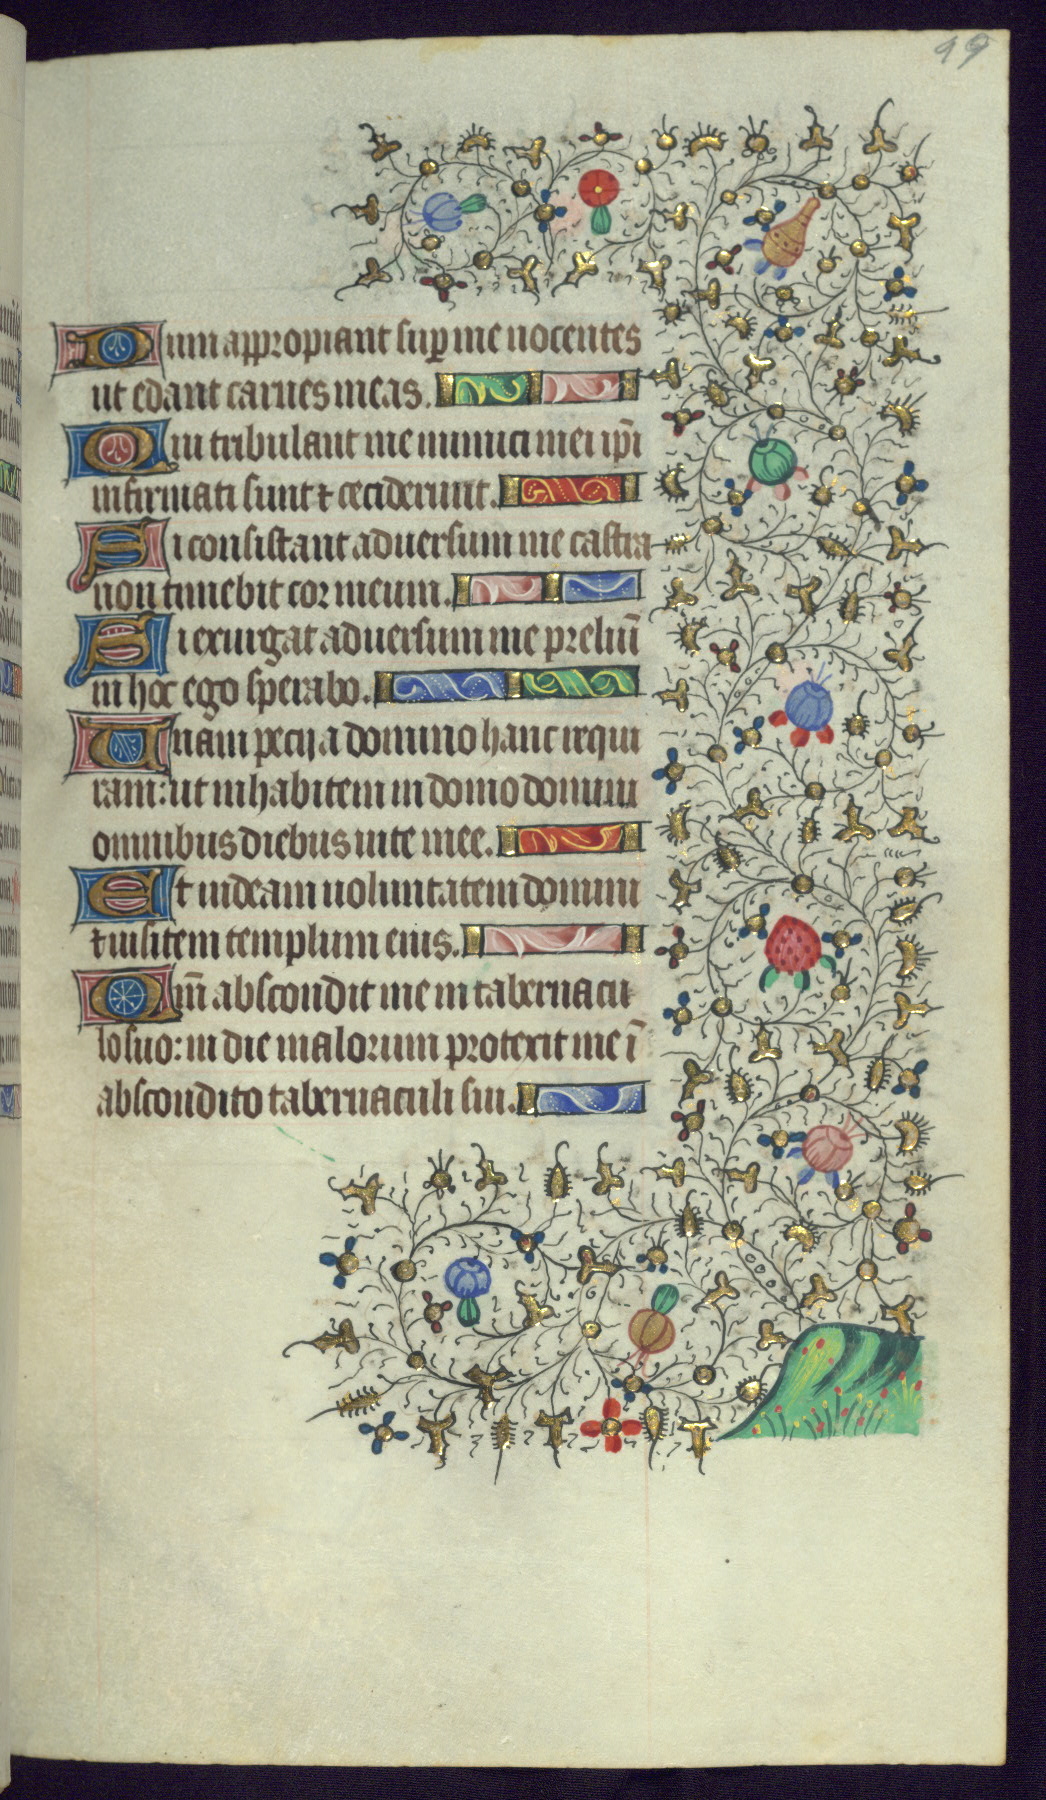 99
Dum appropiant sup me nocentes
ut edant carnes meas.
Qui tribulant me inimici mei ip̄i
infirmati sunt ⁊ ceciderunt.
Si consistant adversum me castra
non timebit cor meum.
Si exurgat adversum me preliū
in hoc ego sperabo.
Unam pecij a domino hanc requi
ram: ut inhabitem in domo domini
omnibus diebus vite mee.
Et videam voluntatem domini
⁊ visitem templum eius.
Qm̄ abscondit me in tabernacu
lo suo: in die malorum protexit me ī
abscondito tabernaculi sui.